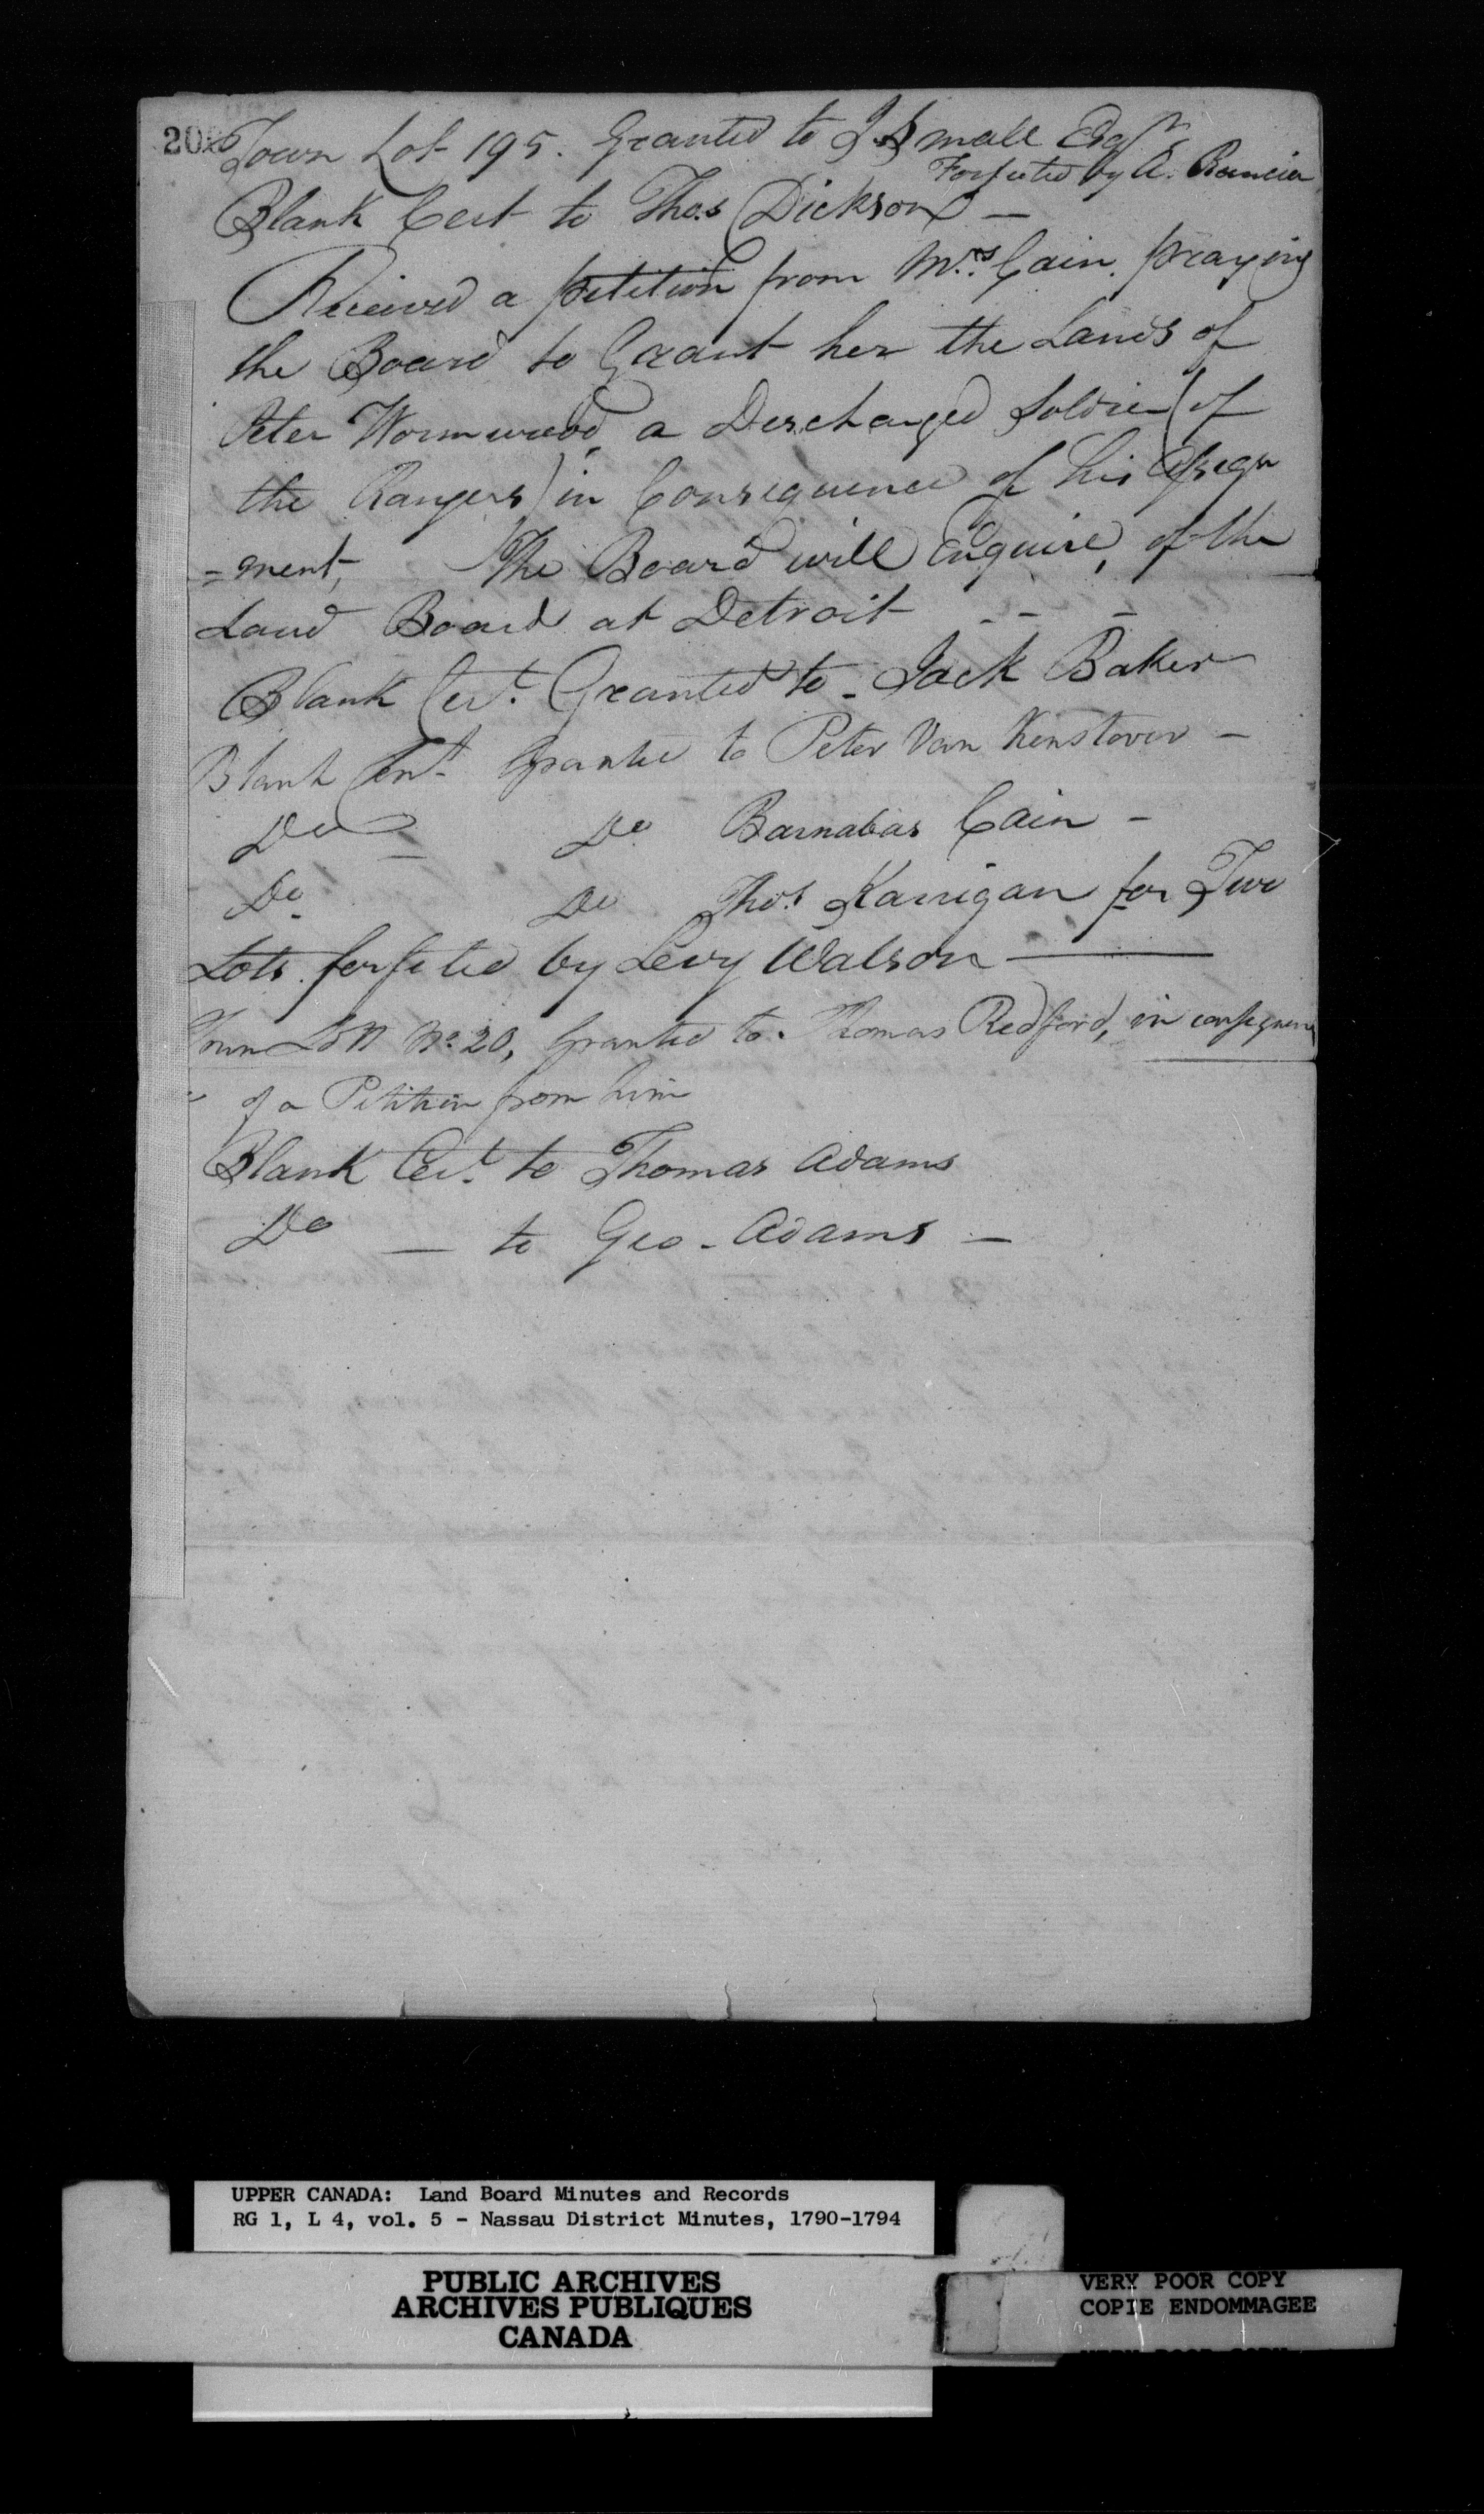 Town Lot 195. Granted to J. Small Esqr
Forfeited by A.
Blank Cert to Thos Dickson —
Received a petition from Mrs. Cain. praying
the Board to Grant her the Lands of
Peter Wormwood, a Descharged Soldier (of
the Rangers) in Consequence of his Assign
=ment, The Board will Enquire, of the
Land Board at Detroit - - -
Blank Cert. Granted to - Jack Baker
Blank Cert. Granted to Peter Van Kenstover -
Do — Do Barnabas Cain -
Do Do Thos. Karrigan for Two
Lots forfeited by Levy Walson ——
Town Lott No. 20, Granted to Thomas Redford, in consequence
of a Petition from him
Blank Cert. to Thomas Adams
Do — to Geo - Adams —
UPPER CANADA: Land Board Minutes and Records
RG 1, L 4, vol. 5 - Nassau District Minutes, 1790-1794
PUBLIC ARCHIVES
ARCHIVES PUBLIQUES
CANADA
VERY POOR COPY
COPIE ENDOMMAGEE